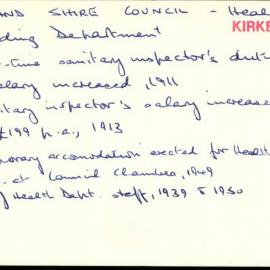 AND SHIRE COUNCIL - Heal
KIRKE
ding Department
-time sanitary inspector's duti
alary increased, 1911
itary inspector's salary increase
£199 p.a., 1913
orary accomodation erected for Health
. at Council Chambers, 1949
Health Dept. staff, 1939 & 1950